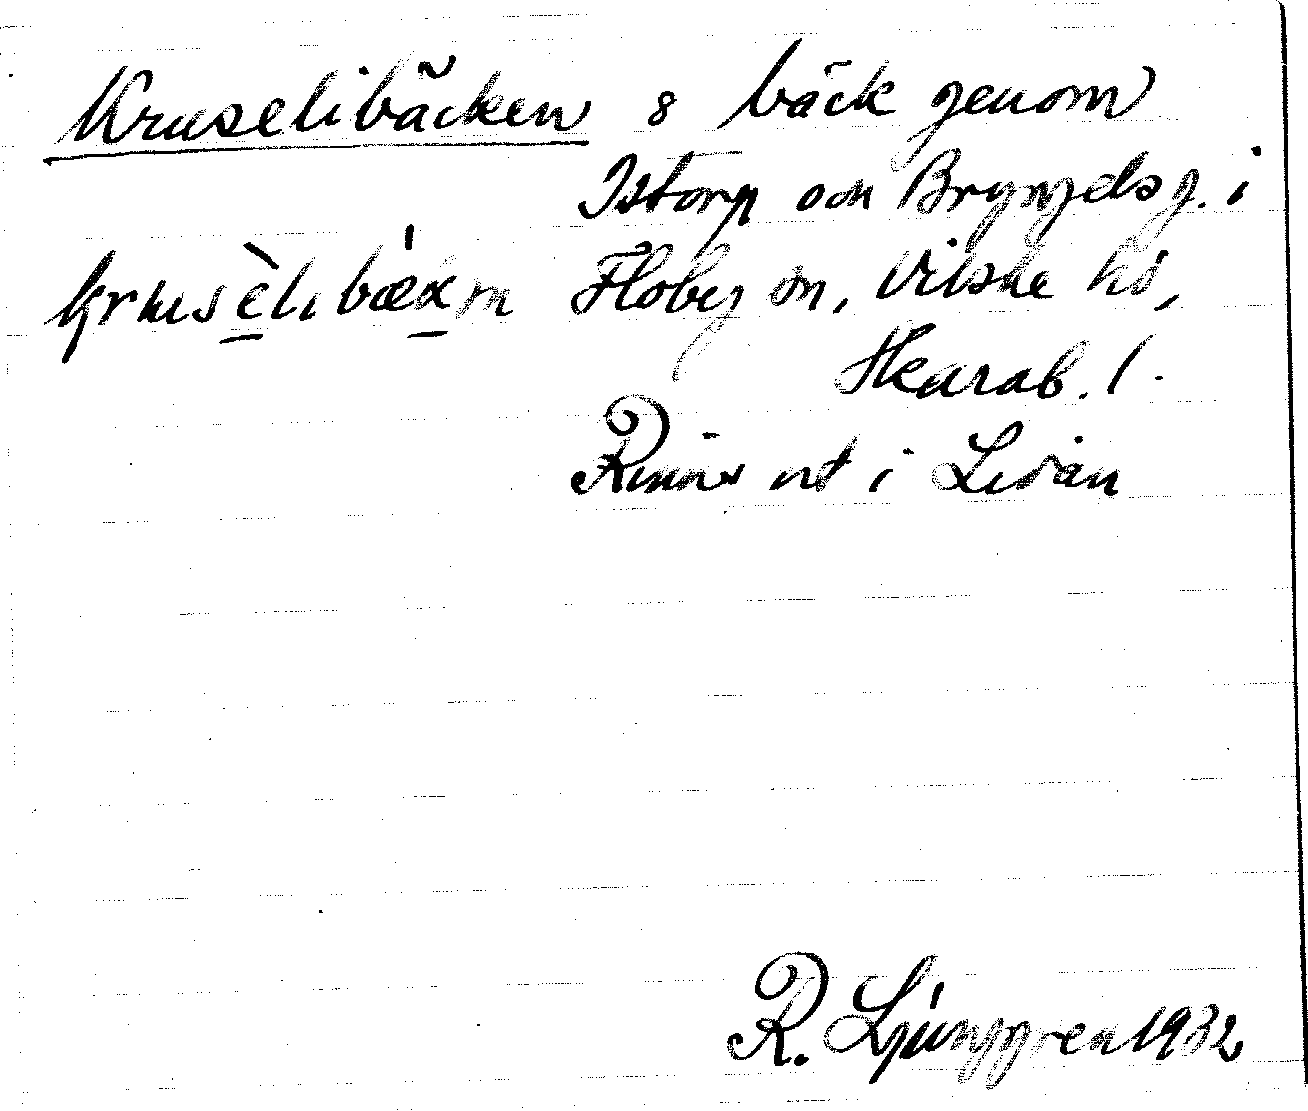 Kruselibäcken 8 bäck genom
Istorp och Bryngelsg. i
kruselibæxn Floby sn, Vilske hd,
Skarab. l.
Rinner ut i Lidan
R. Ljunggren 1932